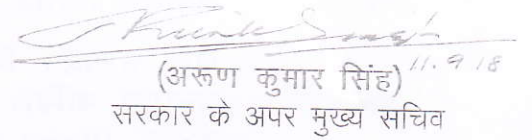 (अरूण कुमार सिंह) 11.9.18
सरकार के अपर मुख्य सचिव